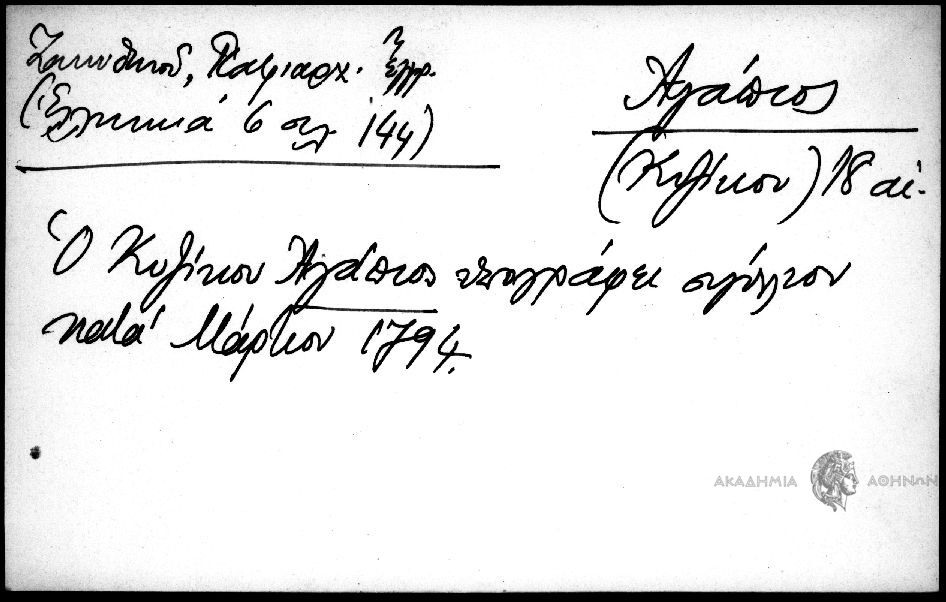 Ζακυθηνοῦ, Πατριαρχ. ἔγγρ.
(Ἑλληνικά 6 σελ. 144)
Ἀγάπιος
(Κυζίκου) 18 αἰ.
Ὁ Κυζίκου Ἀγάπιος ὑπογράφει σιγίλλιον
κατά Μάρτιον 1794.
ΑΚΑΔΗΜΙΑ ΑΘΗΝΩΝ